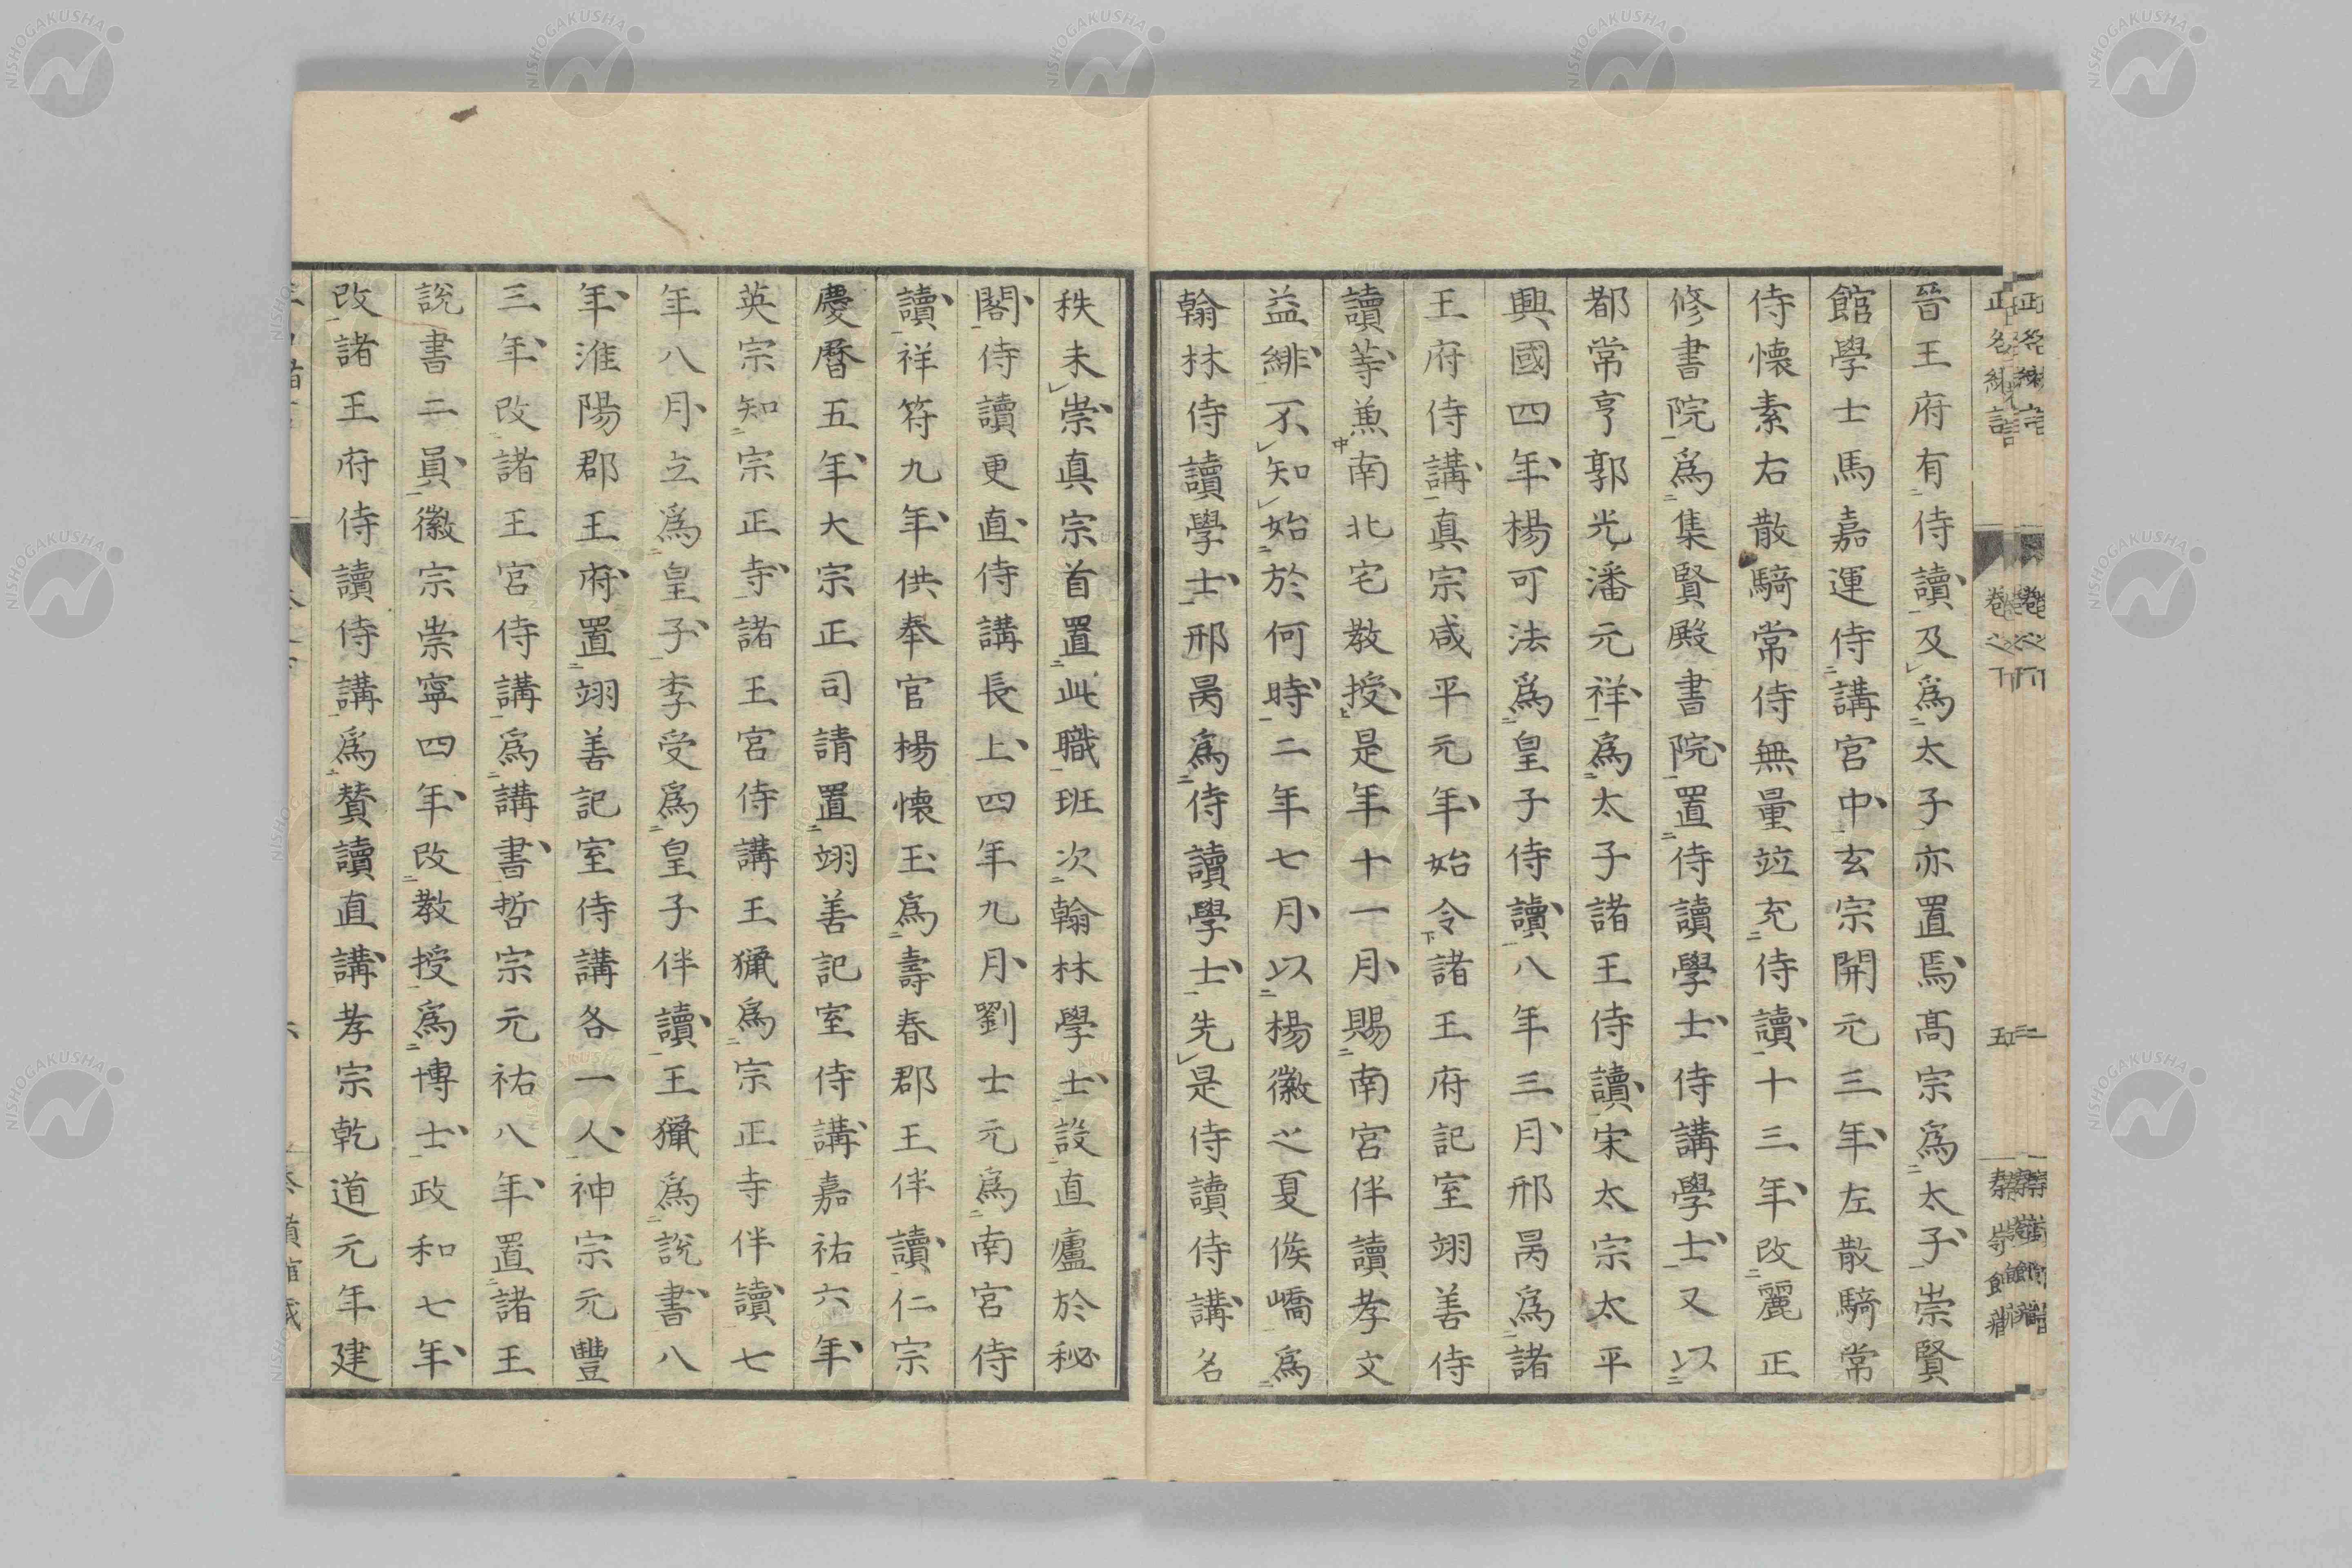 晉王府有侍讀及爲太子亦置焉髙宗爲太子崇賢
館學士馬嘉運侍講宮中玄宗開元三年左散騎常
侍懐素右散騎常侍無量竝充侍讀十三年改麗正
修書院爲集賢殿書院置侍讀學士侍講學士又以
都常亨郭光潘元祥爲太子諸王侍讀宋太宗太平
興國四年楊可法爲皇子侍讀八年三月邢昺爲諸
王府侍講真宗咸平元年始令諸王府記室翊善侍
讀等兼南北宅教授是年十一月賜南宮伴讀孝文
益緋不知始於何時二年七月以楊徽之夏侯嶠爲
翰林侍讀學士邢昺爲侍讀學士先是侍讀侍講名
秩未崇真宗首置此職班次翰林學士設直廬於秘
閣侍讀更直侍講長上四年九月劉士元爲南宮侍
讀祥符九年供奉官楊懐玉爲壽春郡王伴讀仁宗
慶曆五年大宗正司請置翊善記室侍講嘉祐六年
英宗知宗正寺諸王宮侍講王獵爲宗正寺伴讀七
年八月立爲皇子李受爲皇子伴讀王獵爲説書八
年淮陽郡王府置翊善記室侍講各一人神宗元豐
三年改諸王宮侍講爲講書哲宗元祐八年置諸王
説書二員徽宗崇寧四年改教授爲博士政和七年
改諸王府侍讀侍講爲賛讀直講孝宗乾道元年建
正名緒言
卷之下
五
NISHOGAKUSHA